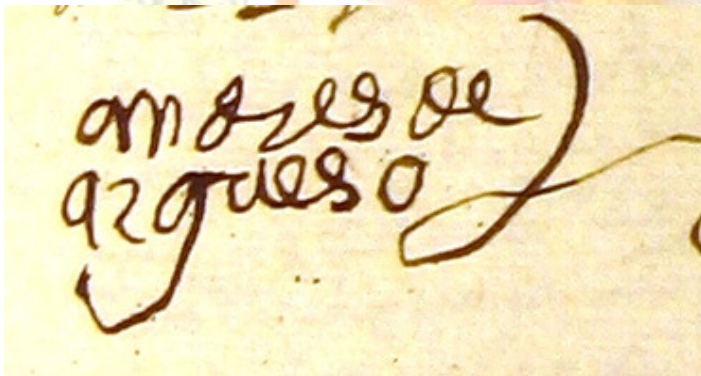 andres de
argueso